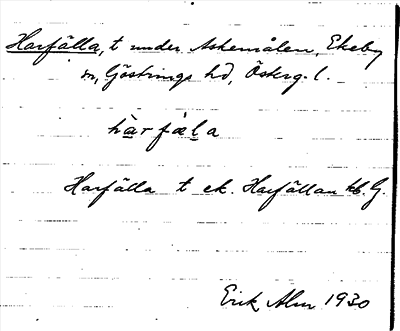 Harfälla, t under Askemålen, Ekeby
sn, Göstrings hd, Österg. l.
hàrfæla
Harfälla t ek. Harfällan kb G.
Erik Alm 1930